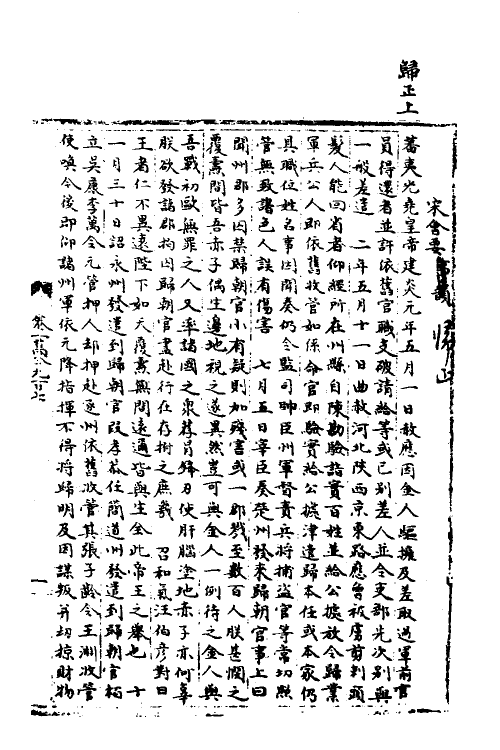 歸正上
宋會要
歸正
蕃夷光堯皇帝建炎元年五月一日赦應因金人驅擄及差取過軍前官
員得還者並許依舊官職支破請給等或已別差人並令吏部先次別與
一般差遣 二年五月十一日曲赦河北陝西京東路應曾被虜剪剃頭
髮人能回省者仰經所在州縣自陳勘驗詣實百姓並給公據放令歸業
軍兵公人即依舊收管如係命官即驗實給公據津遣歸本任或本家仍
具職位姓名事因聞奏仍令監司帥臣州軍督責兵將捕盜官等常切照
管無致諸色人誤有傷害 七月五日宰臣奏楚州發來歸朝官事上曰
聞州郡多因禁歸朝官小有疑則加殘害或一郡戮至數百人朕甚憫之
覆燾間皆吾赤子偶生邊地視之遂異然豈可與金人一例待之金人與
吾戰初敺無罪之人又率諸國之衆荐冒鋒刃使肝腦塗地赤子亦何辜
朕欲發諸郡拘囚歸朝官盡赴行在存撫之庶幾召和氣汪伯彥對曰
王者仁不異遠陛下如天覆燾無間遠邇皆與生全此帝王之舉也 十
一月三十日詔永州發遣到歸朝官段孝恭任簡道州發遣到歸朝官栢
立吳康李萬令元管押人却押赴逐州依舊收管其張子齡令王淵收管
使喚今後即仰諸州軍依元降指揮不得將歸明及因謀叛并刼掠財物
卷一萬九百七
一